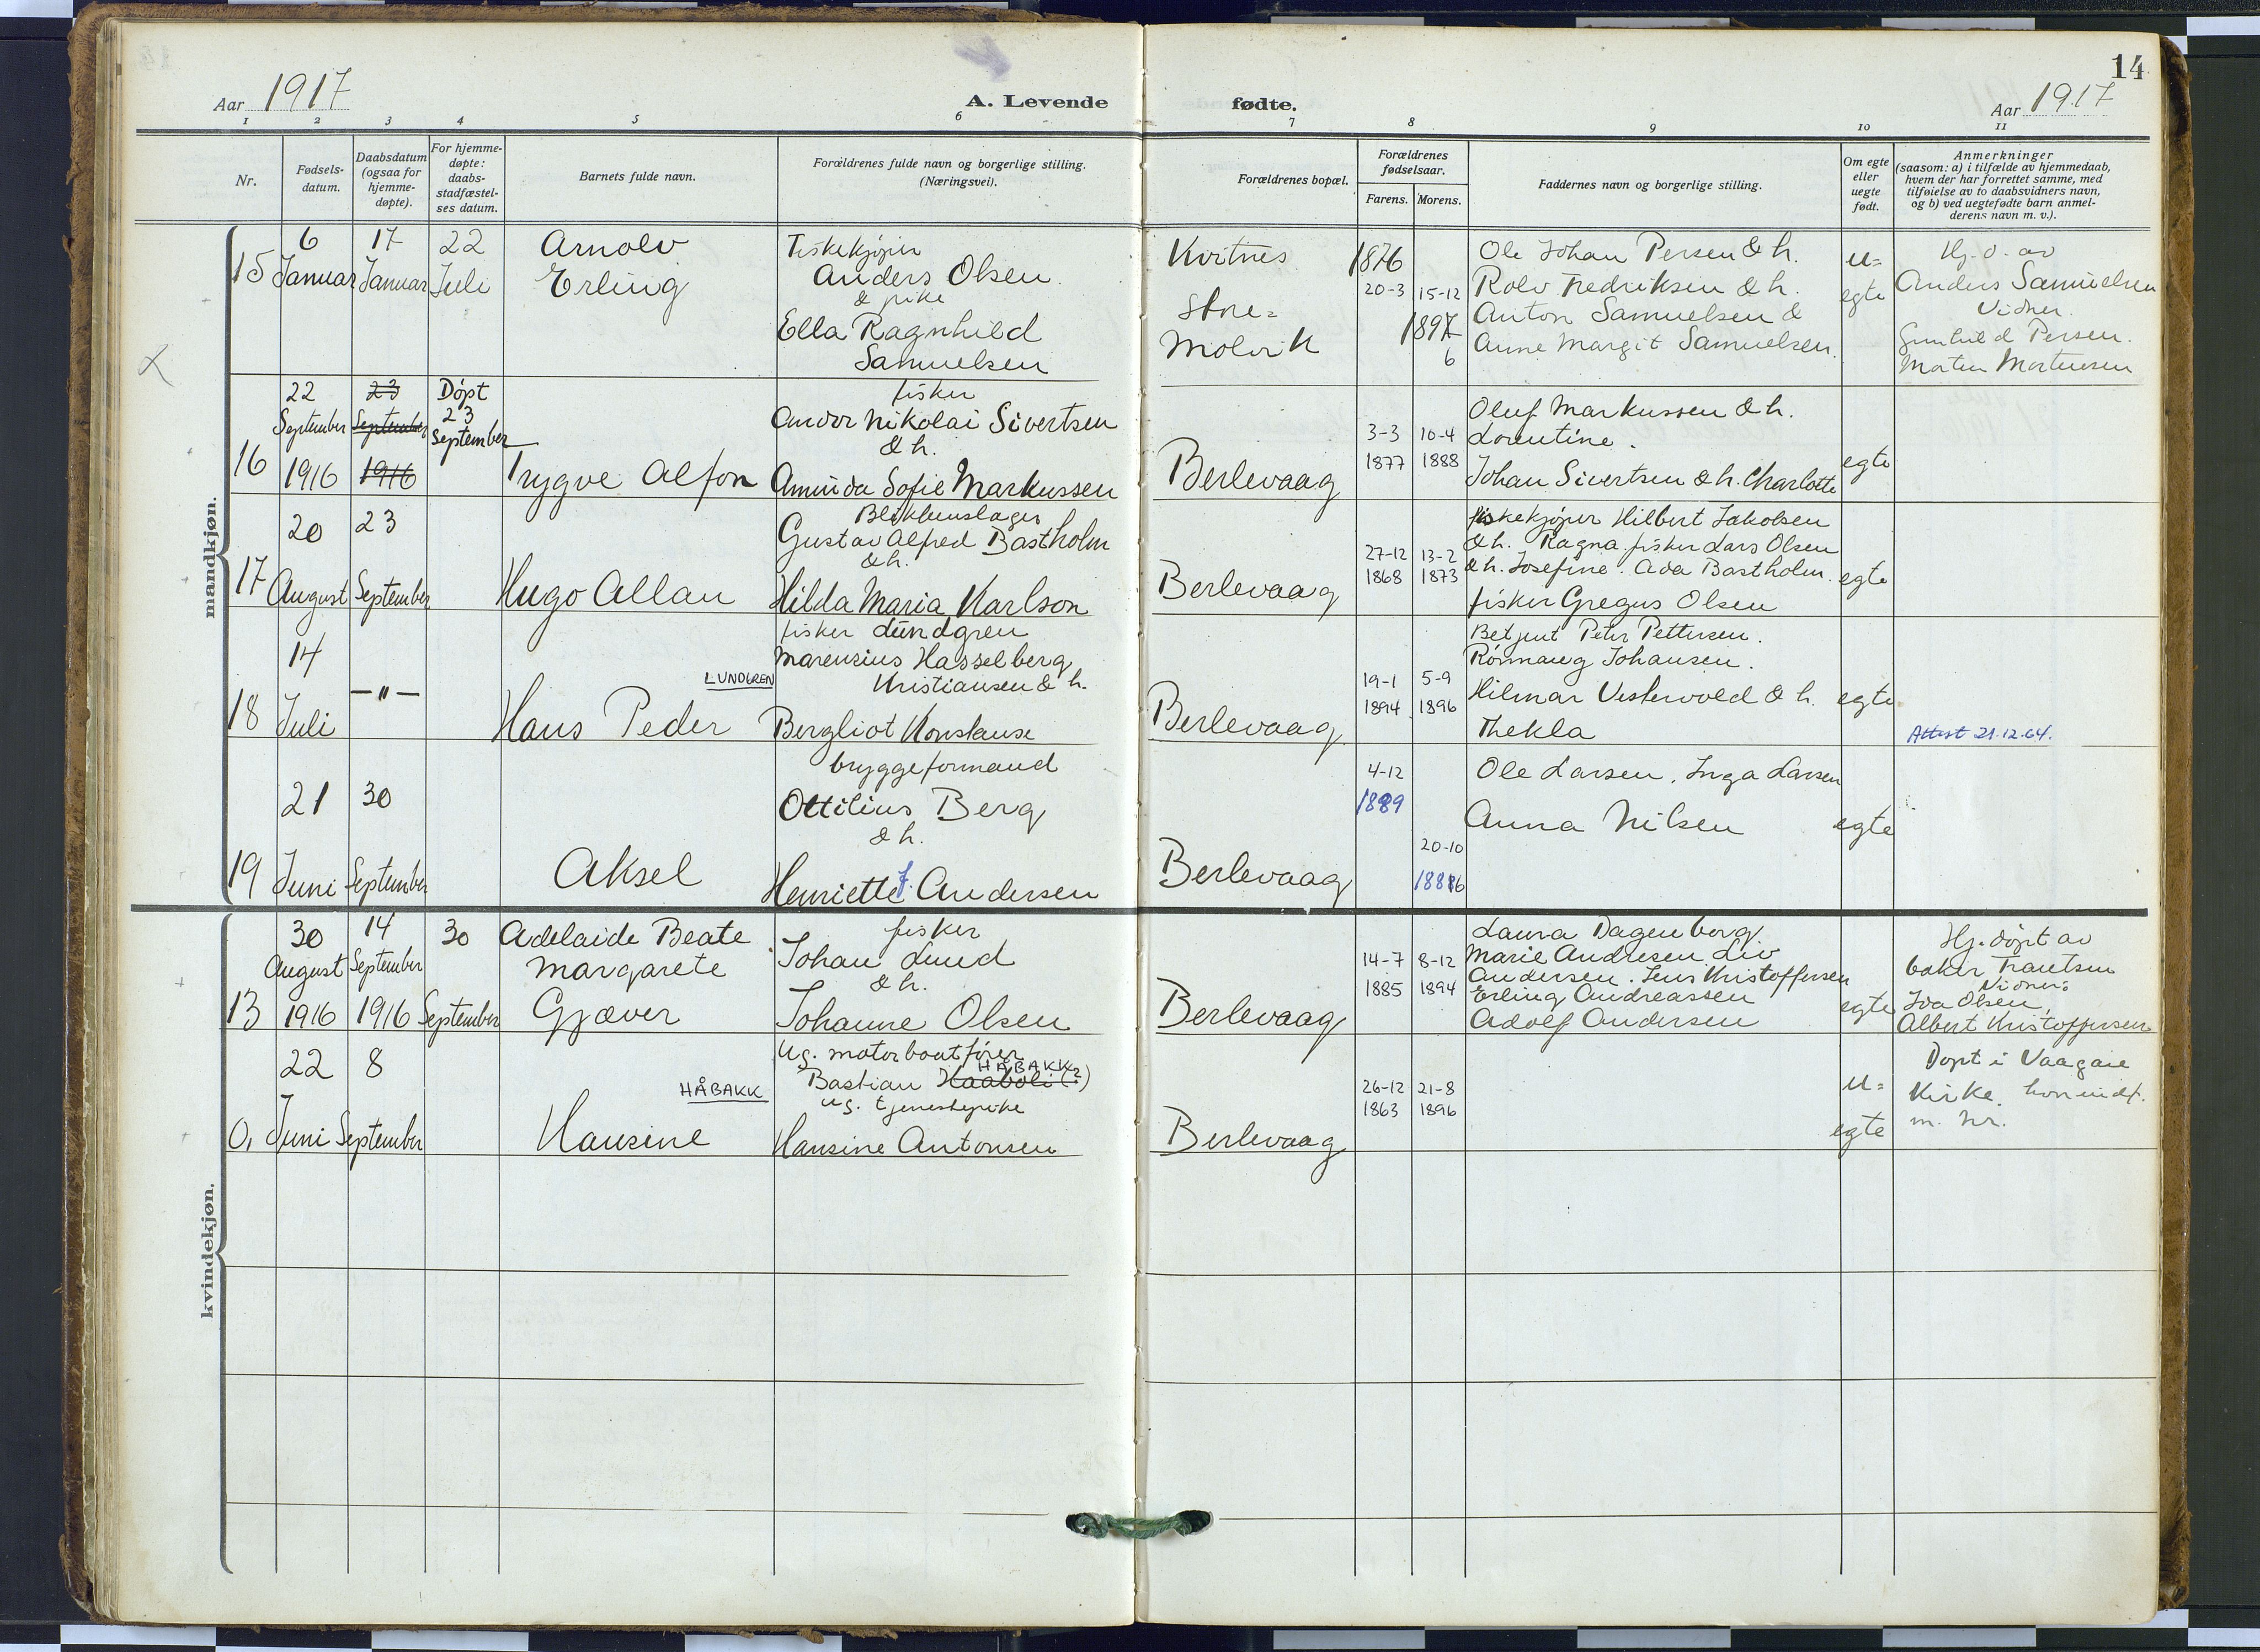 14
Aar 1917
A. Levende
fødte.
Aar 1917
1 2 3 4 5 6 7 8 9 10 11
Nr.
Fødsels-
datum.
Daabsdatum
(ogsaa for
hjemme-
døpte).
For hjemme-
døpte:
daabs-
stadfæstel-
ses datum.
Barnets fulde navn.
Forældrenes fulde navn og borgerlige stilling.
(Næringsvei).
Forældrenes bopæl.
Forældrenes
fødselsaar.
Farens. Morens.
Faddernes navn og borgerlige stilling.
Om egte
eller
uegte
født.
Anmerkninger
(saasom: a) i tilfælde av hjemmedaab,
hvem der har forrettet samme, med
tilføielse av to daabsvidners navn,
og b) ved uegtefødte barn anmel-
derens navn m. v.).
mandkjøn.
15
6
Januar
17
Januar
22
Juli
Arnolv
Erling
Fiskekjøper
Anders Olsen
& pike
Ella Ragnhild
Samuelsen
Kvitnes
Store=
Molvik
1876
20-3
15-12
1897
6
Ole Johan Persen & h.
Rolv Fredriksen & h.
Anton Samuelsen &
Anne Margit Samuelsen.
u=
egte
Hj. d. av
Anders Samuelsen
Vidner
Gunhild Persen.
Morten Mortensen
16
22
September
1916
23
September
1916
Døpt
23
September
Trygve Alfon
fisker
Andor Nikolai Sivertsen
& h.
Aminda Sofie Markussen
Berlevaag
3-3
1877
10-4
1888
Oluf Markussen & h.
Lorentine.
Johan Sivertsen & h. Charlotte
egte
17
20
August
23
September
Hugo Allan
Blikkenslager
Gustav Alfred Bastholm
& h.
Hilda Maria Karlson
Berlevaag
27-12
1868
13-2
1873
fiskekjøper Hilbert Jakobsen
& h. Ragna. fisker Lars Olsen
& h. Josefine. Ada Bastholm.
fisker Gregus Olsen
egte
18
14
Juli
— " —
LUNDGREN
Hans Peder
fisker Lundgren
Marensius Hasselberg
Kristiansen & h.
Bergliot Konstanse
Berlevaag
19-1
1894
5-9
1896
Betjent Peter Pettersen.
Rönnaug Johansen.
Hilmar Vestervold & h.
Thekla
egte
Attest 21.12.64.
19
21
Juni
30
September
Aksel
bryggeformand
Ottilius Berg
& h.
Henriette f. Andersen
Berlevaag
4-12
1889
20-10
1886
Ole Larsen, Inga Larsen
Anna Nilsen
egte
kvindekjøn.
13
30
August
1916
14
September
1916
30
September
Adelaide Beate
Margarete
Gjæver
fisker
Johan Lund
& h.
Johanne Olsen
Berlevaag
14-7
1885
8-12
1894
Laura Dagenborg
Marie Andresen. Liv
Andersen. Jens Kristoffersen
Erling Andreassen
Adolf Andersen
egte
Hj. døpt av
baker Frantsen
Vidner:
Ida Olsen,
Albert Kristoffersen
0,
22
Juni
8
September
HÅBAKK
Hansine
Ug. motorbaatfører
HÅBAKK
Bastian Haaboli (?)
ug. tjenestepike
Hansine Antonsen
Berlevaag
26-12
1863
21-8
1896
u=
egte
Døpt i Vaagane
Kirke,
m. Nr.